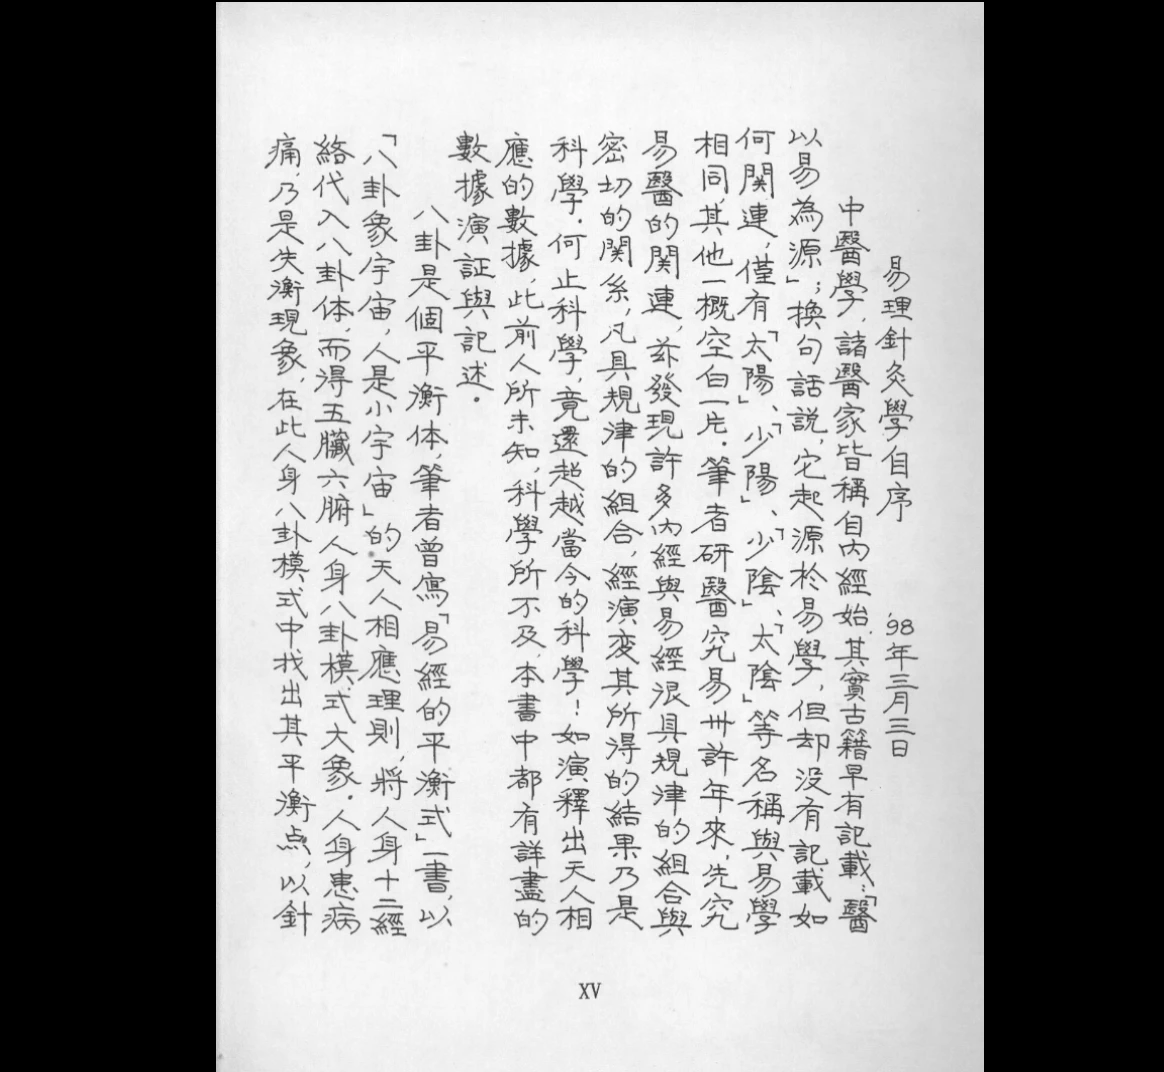 易理針灸學自序 '98年三月三日
中醫學，諸醫家皆稱自內經始，其實古籍早有記載：「醫
以易為源」；換句話說，它起源於易學，但却沒有記載如
何関連，僅有「太陽」、「少陽」、「少陰」、「太陰」等名稱與易學
相同，其他一概空白一片．筆者研醫究易卅許年來，先究
易醫的関連，茲發現許多內經與易經很具規律的組合與
密切的関系，凡具規律的組合，經演变其所得的結果乃是
科學．何止科學，竟還超越當今的科學！如演釋出天人相
應的數據，此前人所未知，科學所不及，本書中都有詳盡的
數據演証與記述．
八卦是個平衡体，筆者曾寫「易經的平衡式」一書，以
「八卦象宇宙，人是小宇宙」的天人相應理則，將人身十二經
絡代入八卦体，而得五臟六腑人身八卦模式大象．人身患病
痛，乃是失衡現象，在此人身八卦模式中找出其平衡点，以針
XV